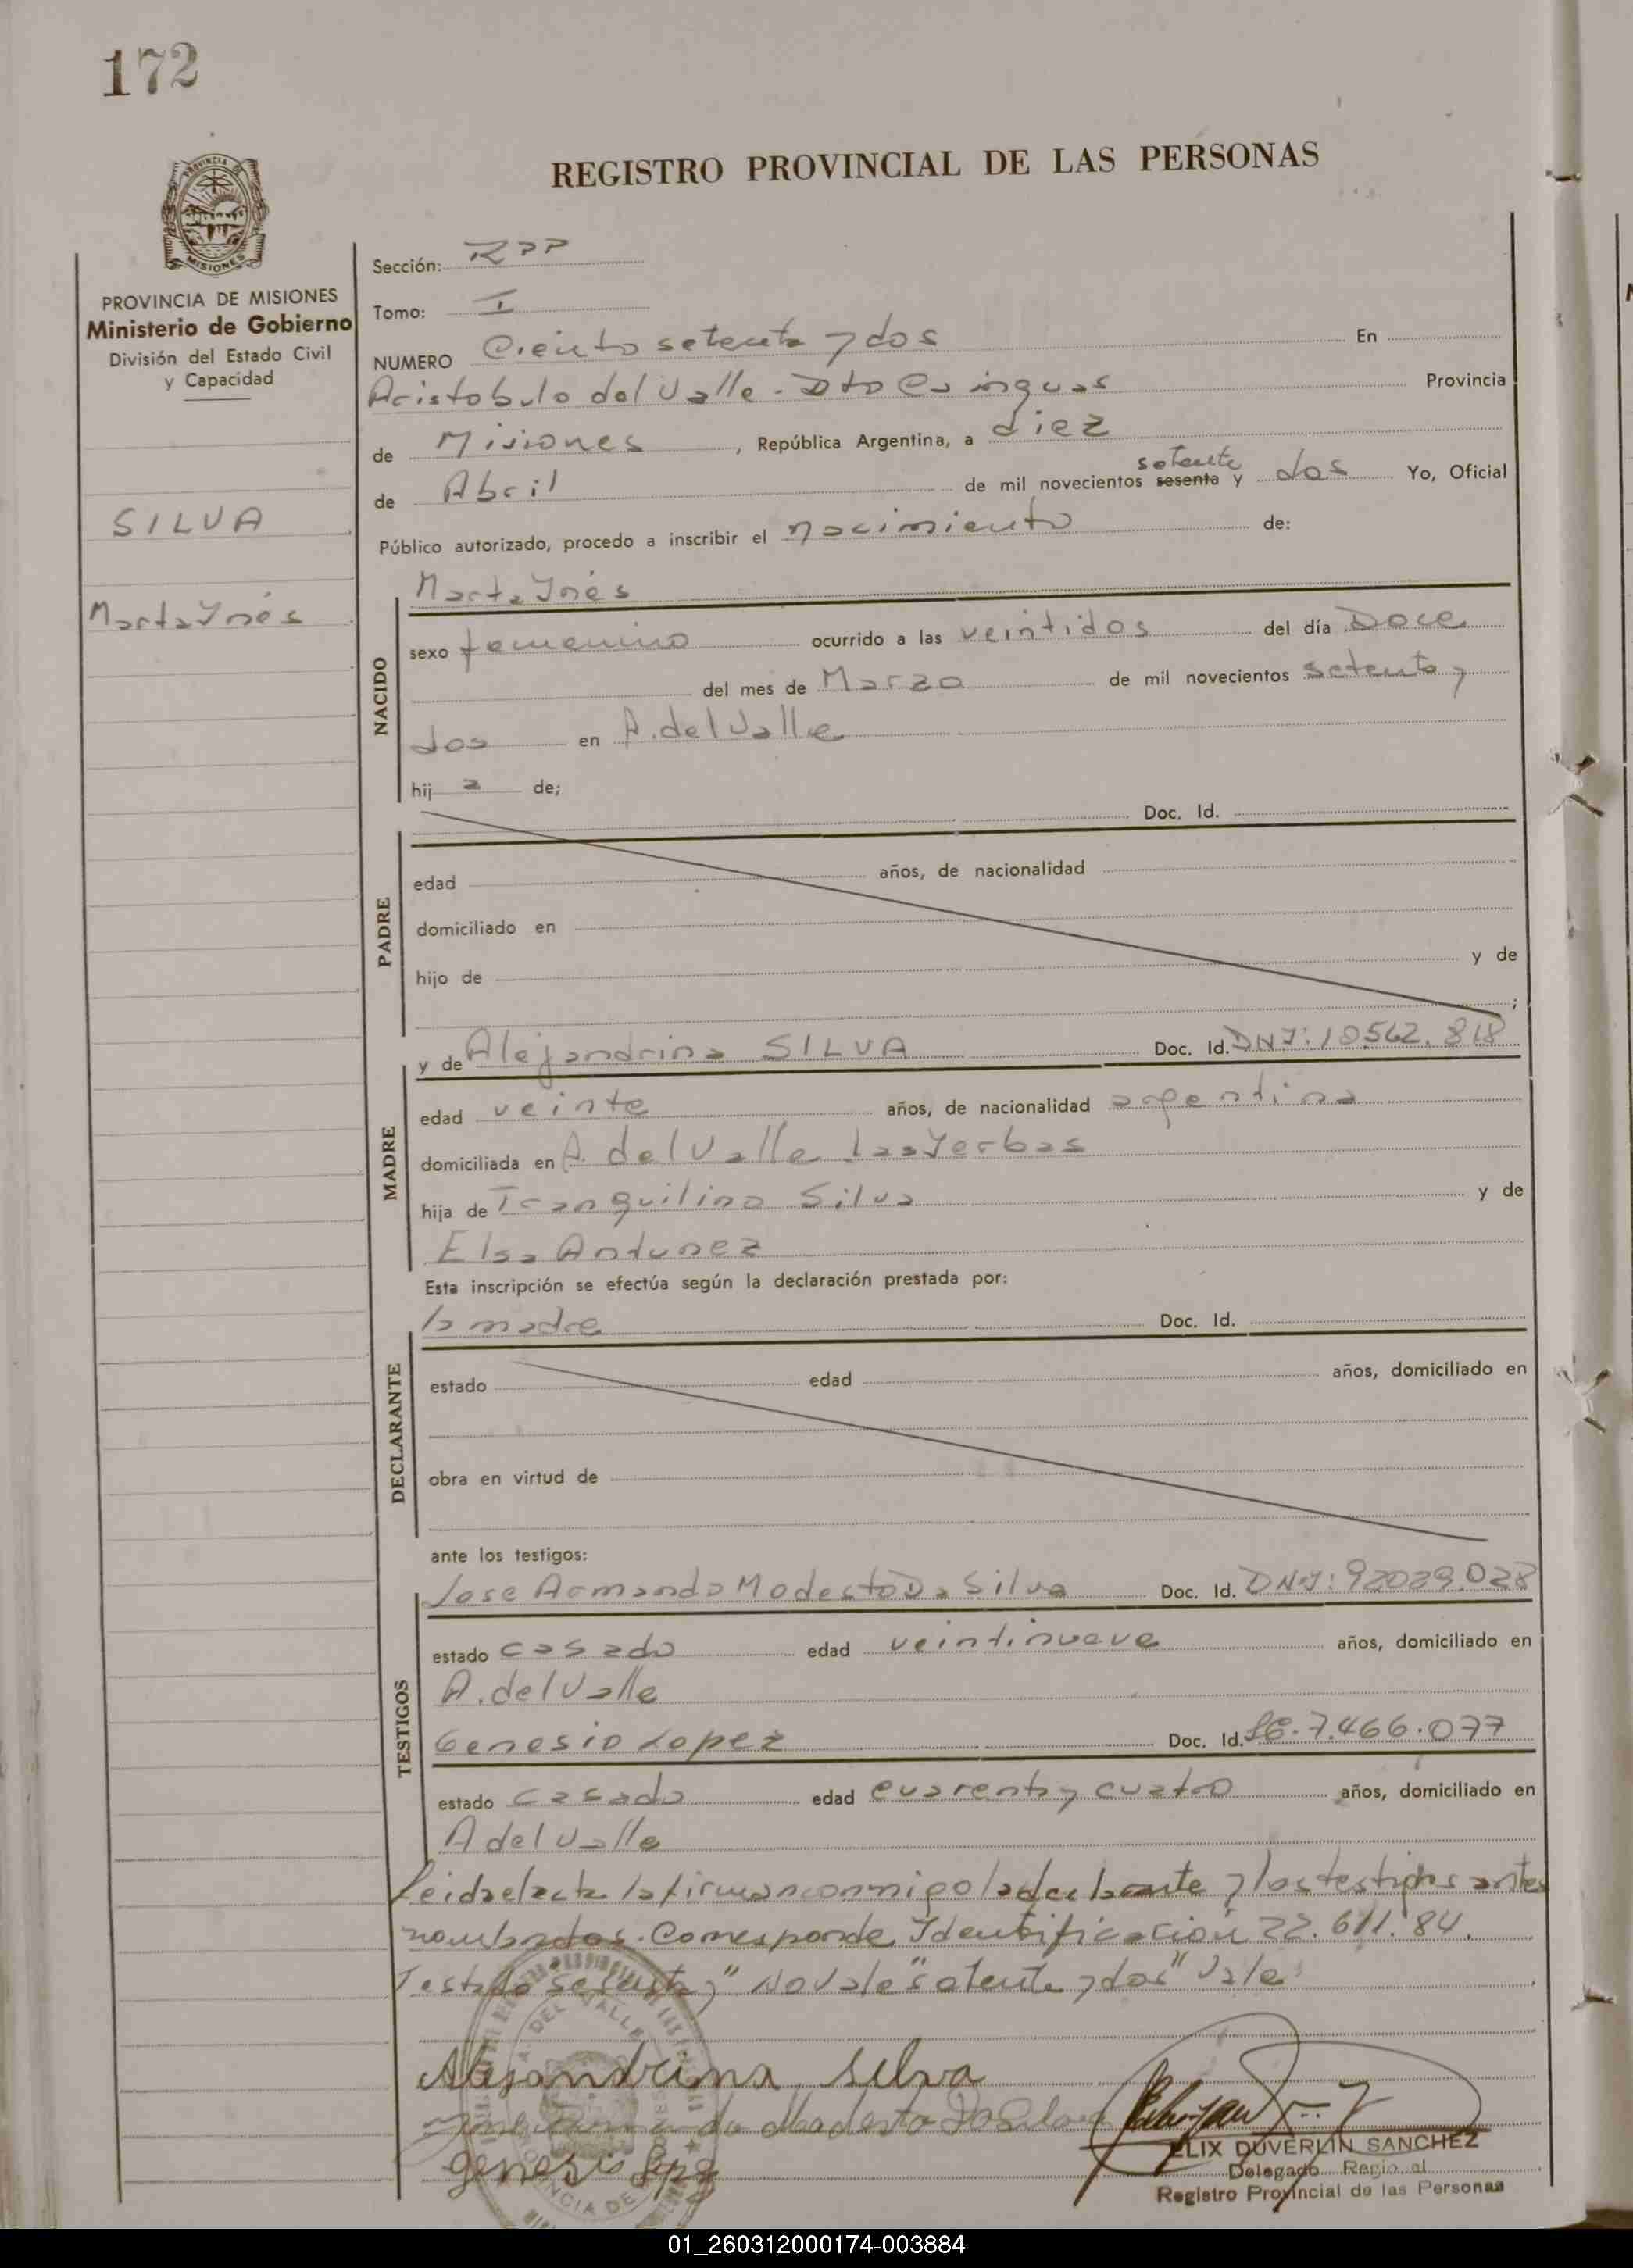 172
REGISTRO PROVINCIAL DE LAS PERSONAS
PROVINCIA
MISIONES
PROVINCIA DE MISIONES
Ministerio de Gobierno
División del Estado Civil
y Capacidad
SILVA
Marta Ynés
Sección: RPP
Tomo: I
NUMERO Ciento setenta y dos En
Aristobulo del Valle - Dto Cainguas Provincia
de Misiones, República Argentina, a diez
setenta
de Abril de mil novecientos sesenta y dos Yo, Oficial
Público autorizado, procedo a inscribir el nacimiento de:
Marta Ynés
NACIDO
sexo femenino ocurrido a las veintidos del día Doce
del mes de Marzo de mil novecientos setenta y
dos en A. del Valle
hij a de;
Doc. Id.
PADRE
edad años, de nacionalidad
domiciliado en
hijo de y de
;
y de Alejandrina SILVA Doc. Id. DNI: 10562.818
MADRE
edad veinte años, de nacionalidad argentina
domiciliada en A. del Valle Las Yerbas
hija de Tranquilino Silva y de
Elsa Antunez
Esta inscripción se efectúa según la declaración prestada por:
la madre Doc. Id.
DECLARANTE
estado edad años, domiciliado en
obra en virtud de
ante los testigos:
Jose Armando Modesto Da Silva Doc. Id. DNI: 92029.028
TESTIGOS
estado casado edad veintinueve años, domiciliado en
A. del Valle
Genesio Lopez Doc. Id. LE. 7.466.077
estado casado edad cuarenta y cuatro años, domiciliado en
A del Valle
Leida el acta la firman conmigo la declarante y los testigos antes
nombrados. Corresponde Identificación 22.611.84.
Testado sesenta y" No Vale "setenta y dos" Vale
Alejandrina Silva
Modesto Da Silva
genesio Lopez
A. DEL VALLE
PROVINCIA DE
ELIX DUVERLIN SANCHEZ
Delegado Regional
Registro Provincial de las Personas
01_260312000174-003884